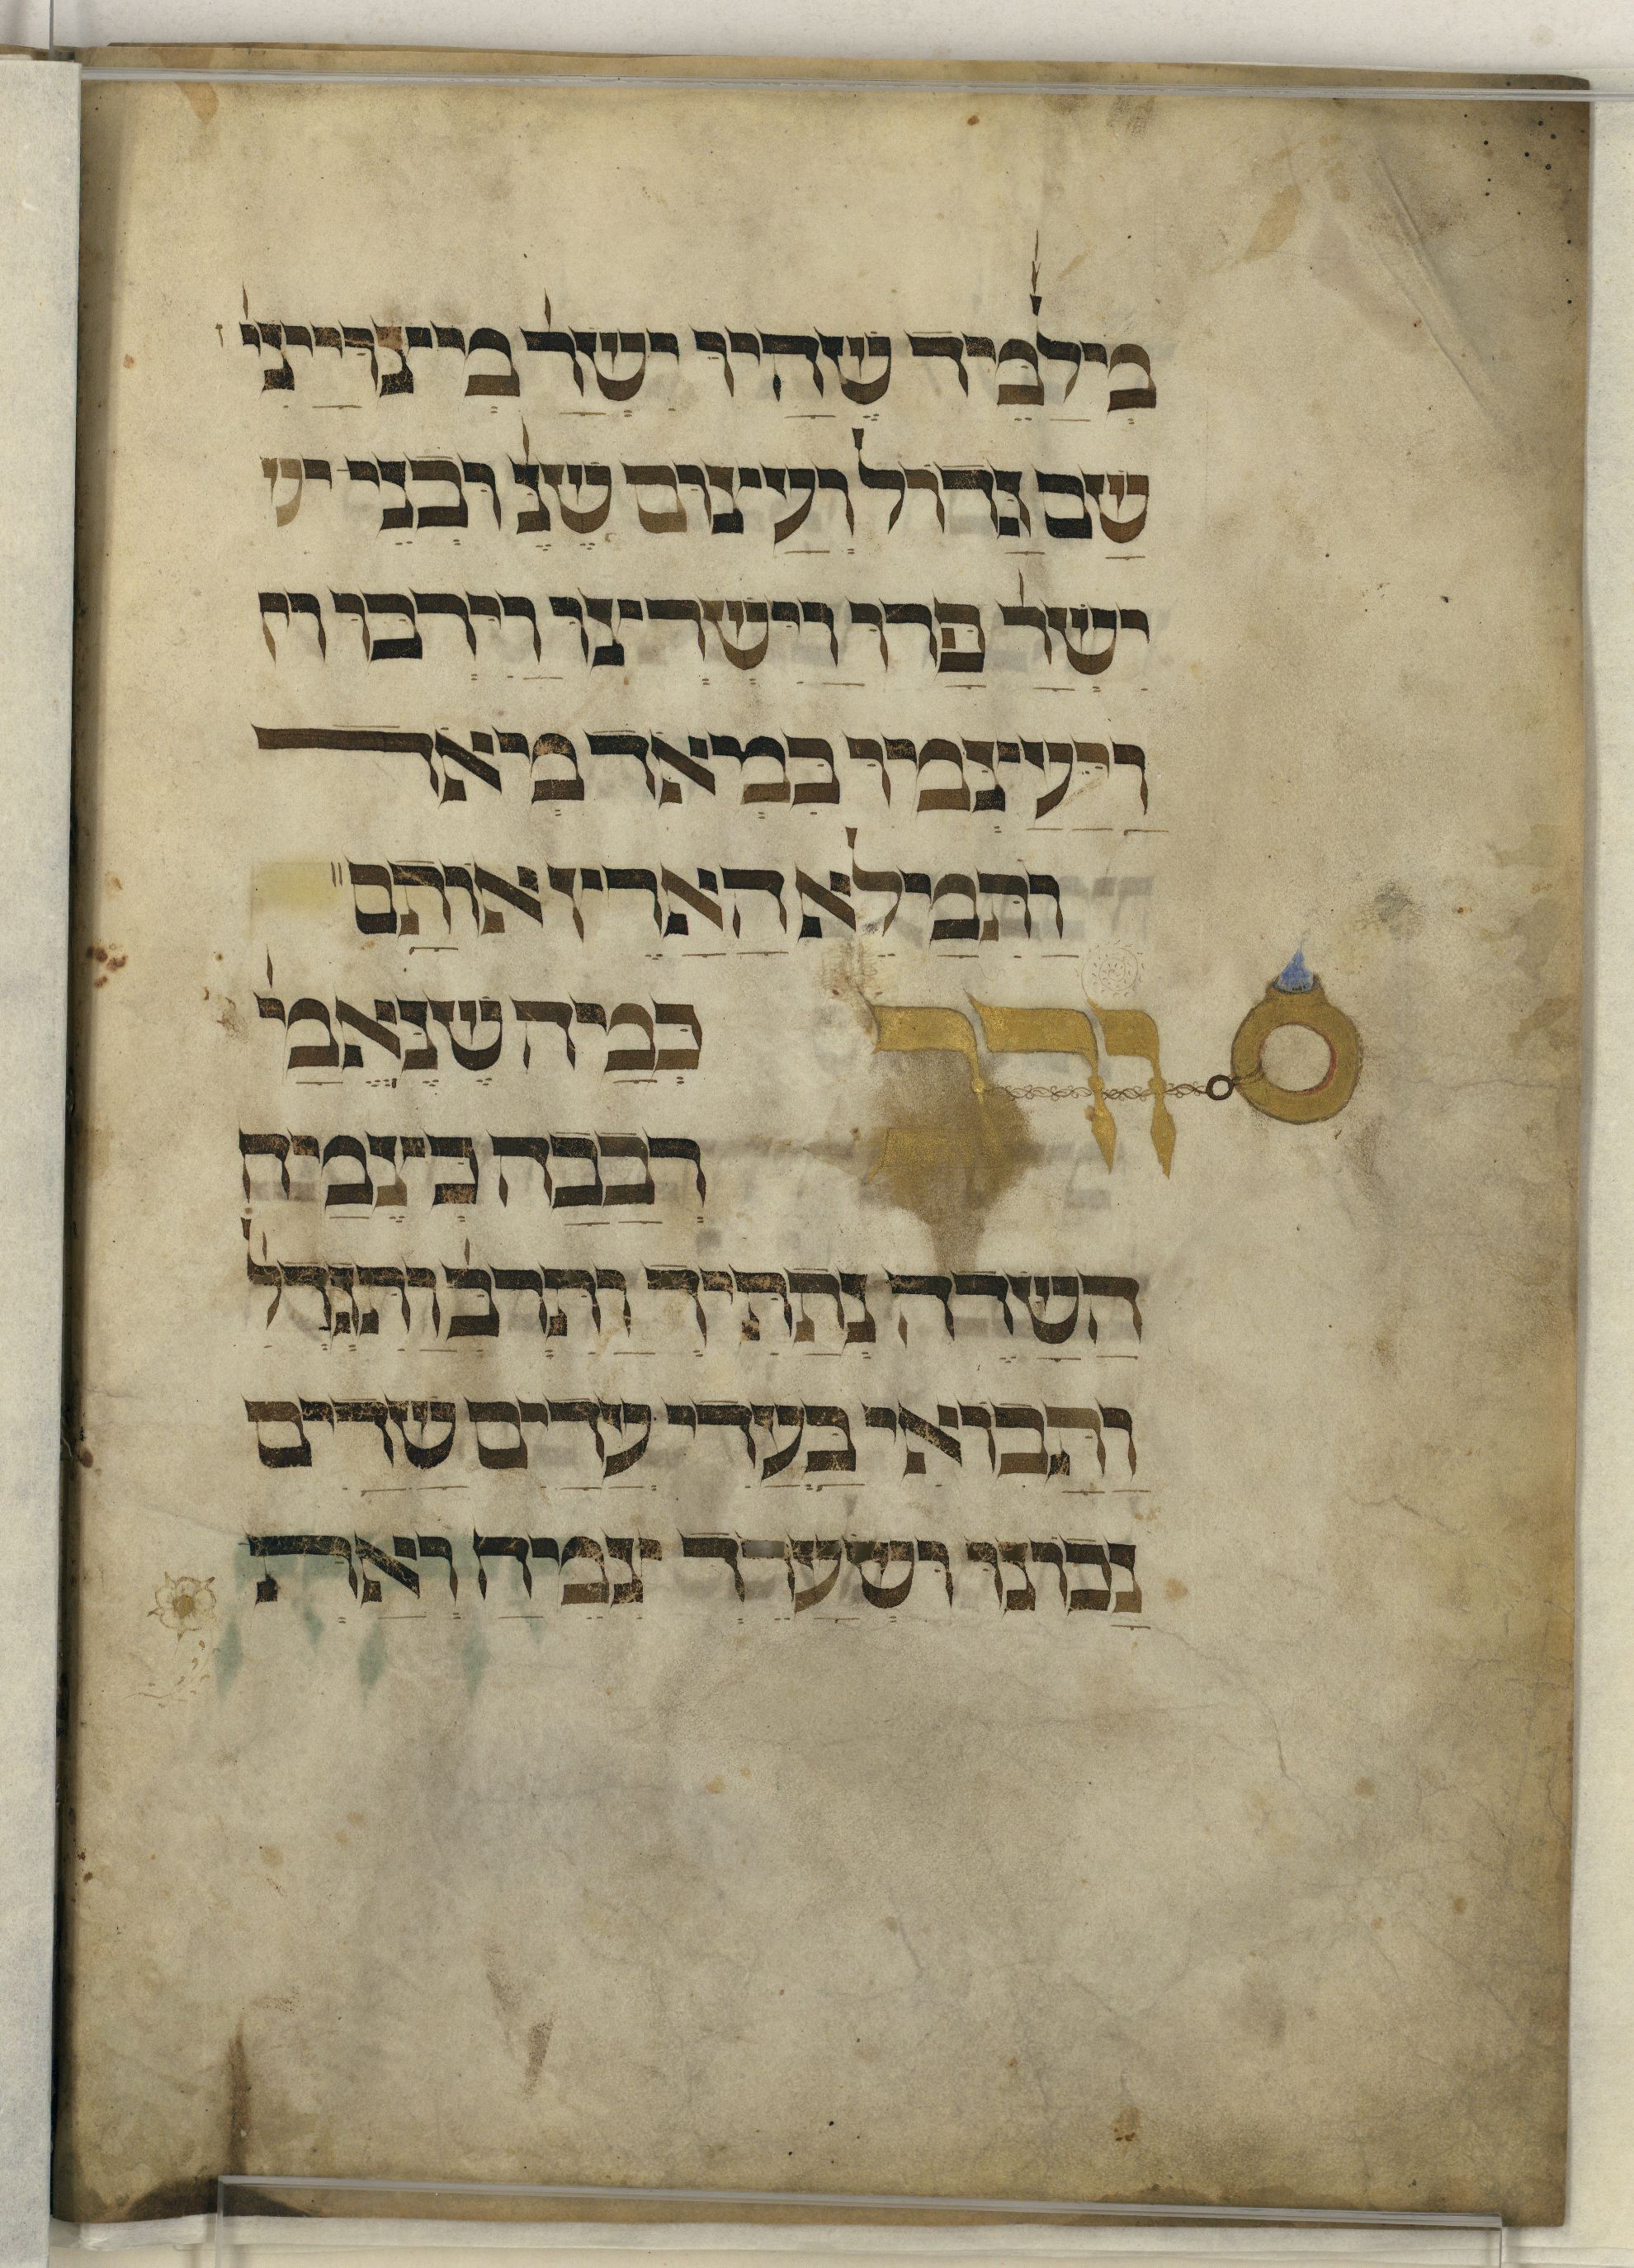 מילמיד שהיו ישר' מיצוייני'
שם גדול ועיצום שנ' ובני יש
ישר' פרו וישריצו וירבו וי
ויעיצמו במאד מיאד
ותמילא האריץ אותם
ורב כמיה שנאמ'
רבבה כיצמיח
השדה נתתיך ותרב' ותגדל'
ותבואי בעדי עדים שדים
נכונו ושערך יצמיח ואת